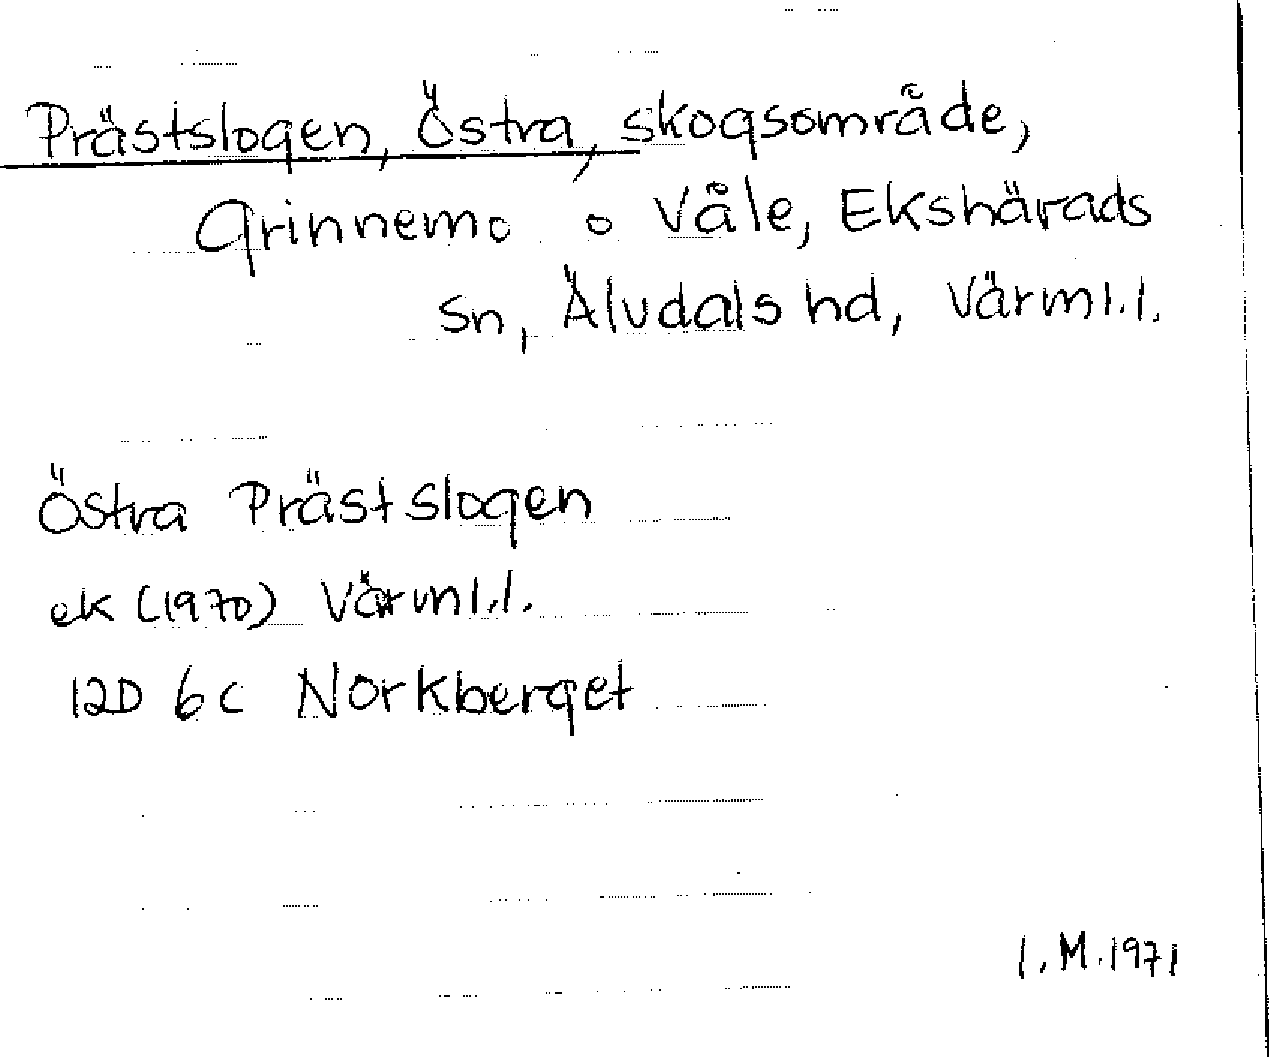 Prästslogen, Östra, skogsområde,
Grinnemo o Våle, Ekshärads
sn, Älvdals hd, Värml.l.
Östra Prästslogen
ek (1970) Värml.l.
12D 6c Norkberget
I.M.1971